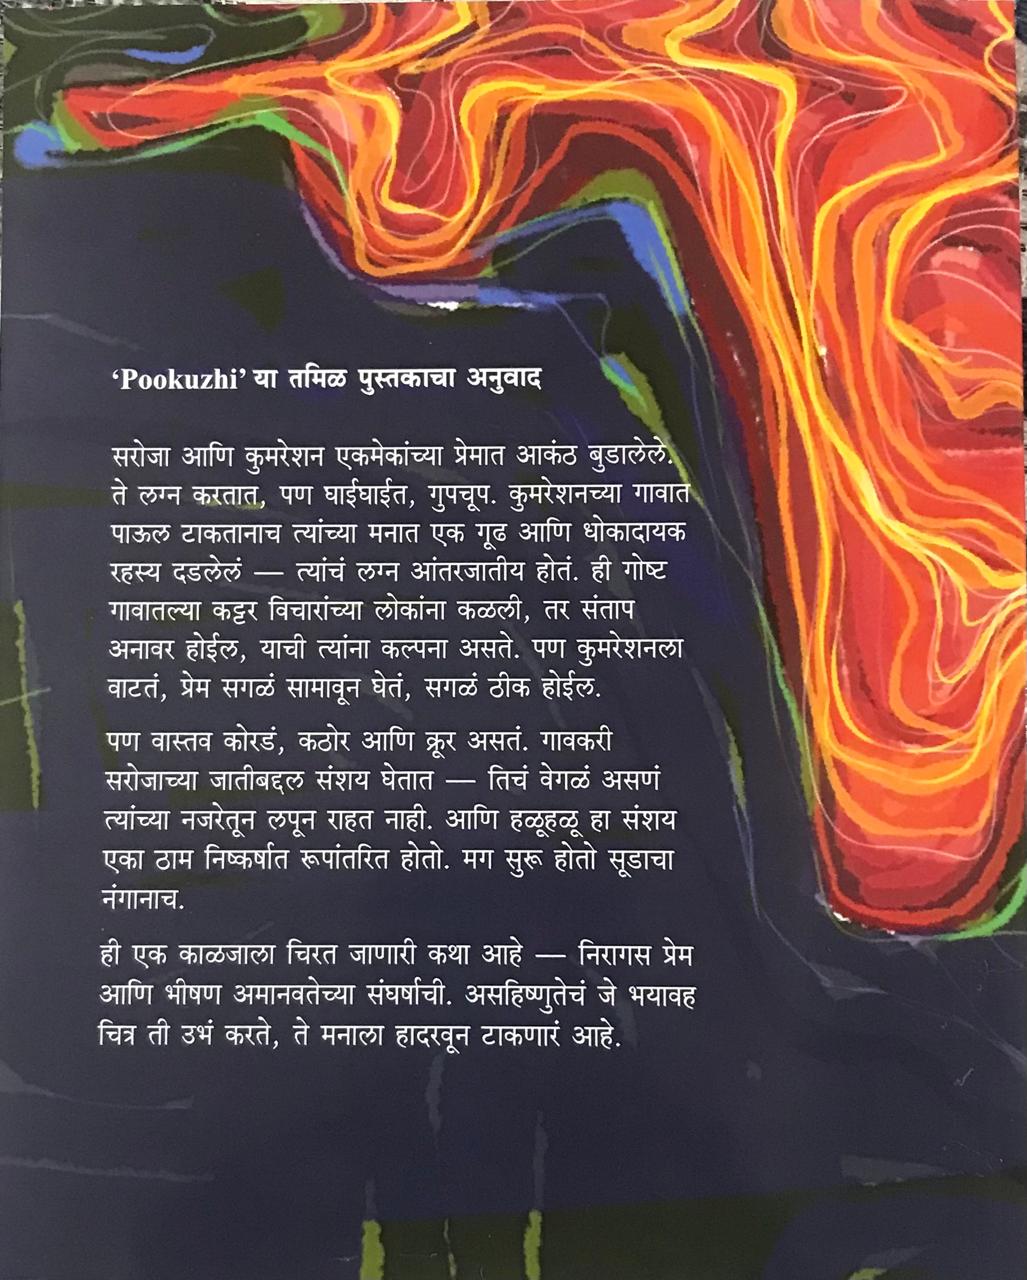 ‘Pookuzhi’ या तमिळ पुस्तकाचा अनुवाद
सरोजा आणि कुमरेशन एकमेकांच्या प्रेमात आकंठ बुडालेले.
ते लग्न करतात, पण घाईघाईत, गुपचूप. कुमरेशनच्या गावात
पाऊल टाकतानाच त्यांच्या मनात एक गूढ आणि धोकादायक
रहस्य दडलेलं — त्यांचं लग्न आंतरजातीय होतं. ही गोष्ट
गावातल्या कट्टर विचारांच्या लोकांना कळली, तर संताप
अनावर होईल, याची त्यांना कल्पना असते. पण कुमरेशनला
वाटतं, प्रेम सगळं सामावून घेतं, सगळं ठीक होईल.
पण वास्तव कोरडं, कठोर आणि क्रूर असतं. गावकरी
सरोजाच्या जातीबद्दल संशय घेतात — तिचं वेगळं असणं
त्यांच्या नजरेतून लपून राहत नाही. आणि हळूहळू हा संशय
एका ठाम निष्कर्षात रूपांतरित होतो. मग सुरू होतो सूडाचा
नंगानाच.
ही एक काळजाला चिरत जाणारी कथा आहे — निरागस प्रेम
आणि भीषण अमानवतेच्या संघर्षाची. असहिष्णुतेचं जे भयावह
चित्र ती उभं करते, ते मनाला हादरवून टाकणारं आहे.